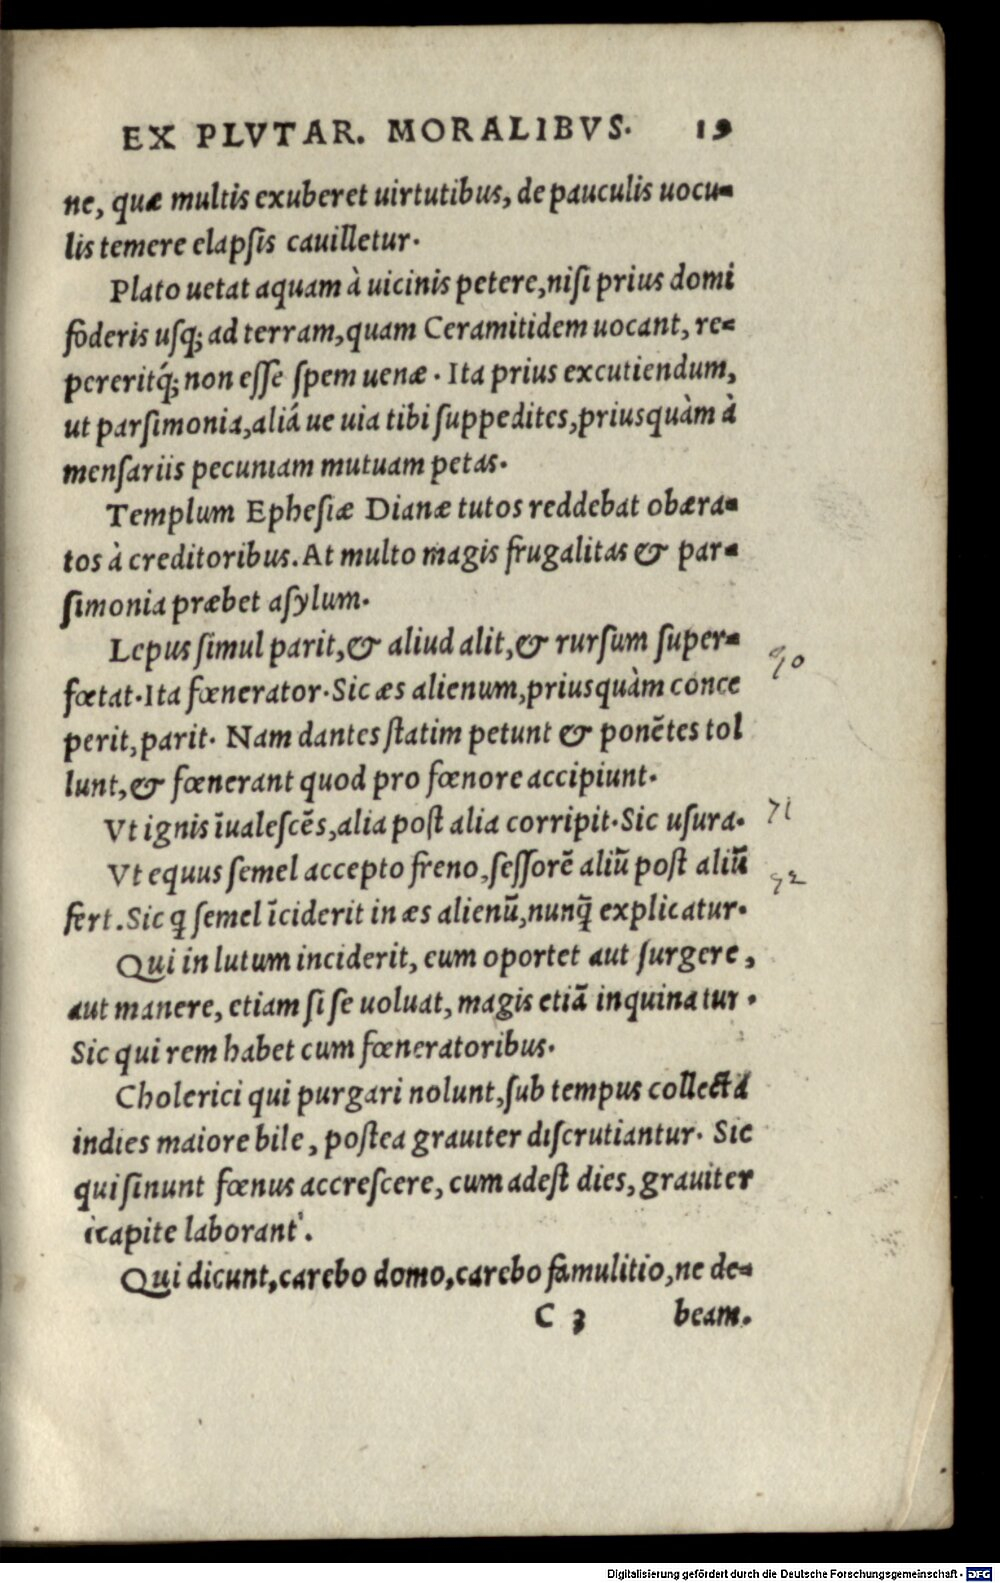 EX PLVTAR. MORALIBVS. 19
ne, quæ multis exuberet uirtutibus, de pauculis uocu-
lis temere elapſis cauilletur.
Plato uetat aquam à uicinis petere, niſi prius domi
foderis uſq; ad terram, quam Ceramitidem uocant, re-
pereritq́; non eſſe ſpem uenæ. Ita prius excutiendum,
ut parſimonia, aliá ue uia tibi ſuppedites, priusquàm à
menſariis pecuniam mutuam petas.
Templum Epheſiæ Dianæ tutos reddebat obæra-
tos à creditoribus. At multo magis frugalitas & par-
ſimonia præbet aſylum.
Lepus ſimul parit, & aliud alit, & rurſum ſuper-
fœtat. Ita fœnerator. Sic æs alienum, priusquàm conce
perit, parit. Nam dantes ſtatim petunt & ponētes tol
lunt, & fœnerant quod pro fœnore accipiunt.
Vt ignis īualeſcēs, alia poſt alia corripit. Sic uſura.
Vt equus ſemel accepto freno, ſeſſorē aliū poſt aliū
fert. Sic q̨ ſemel īciderit in æs alienū, nunq̄ explicatur.
Qui in lutum inciderit, eum oportet aut ſurgere,
aut manere, etiam ſi ſe uoluat, magis etiā inquinatur.
Sic qui rem habet cum fœneratoribus.
Cholerici qui purgari nolunt, ſub tempus collecta
indies maiore bile, poſtea grauiter diſcrutiantur. Sic
qui ſinunt fœnus accreſcere, cum adeſt dies, grauiter
icapite laborant.
Qui dicunt, carebo domo, carebo famulitio, ne de-
C 3 beam.
70
71
72
Digitalisierung gefördert durch die Deutsche Forschungsgemeinschaft - DFG